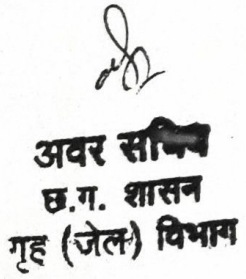 अवर सचिव
छ.ग. शासन
गृह (जेल) विभाग